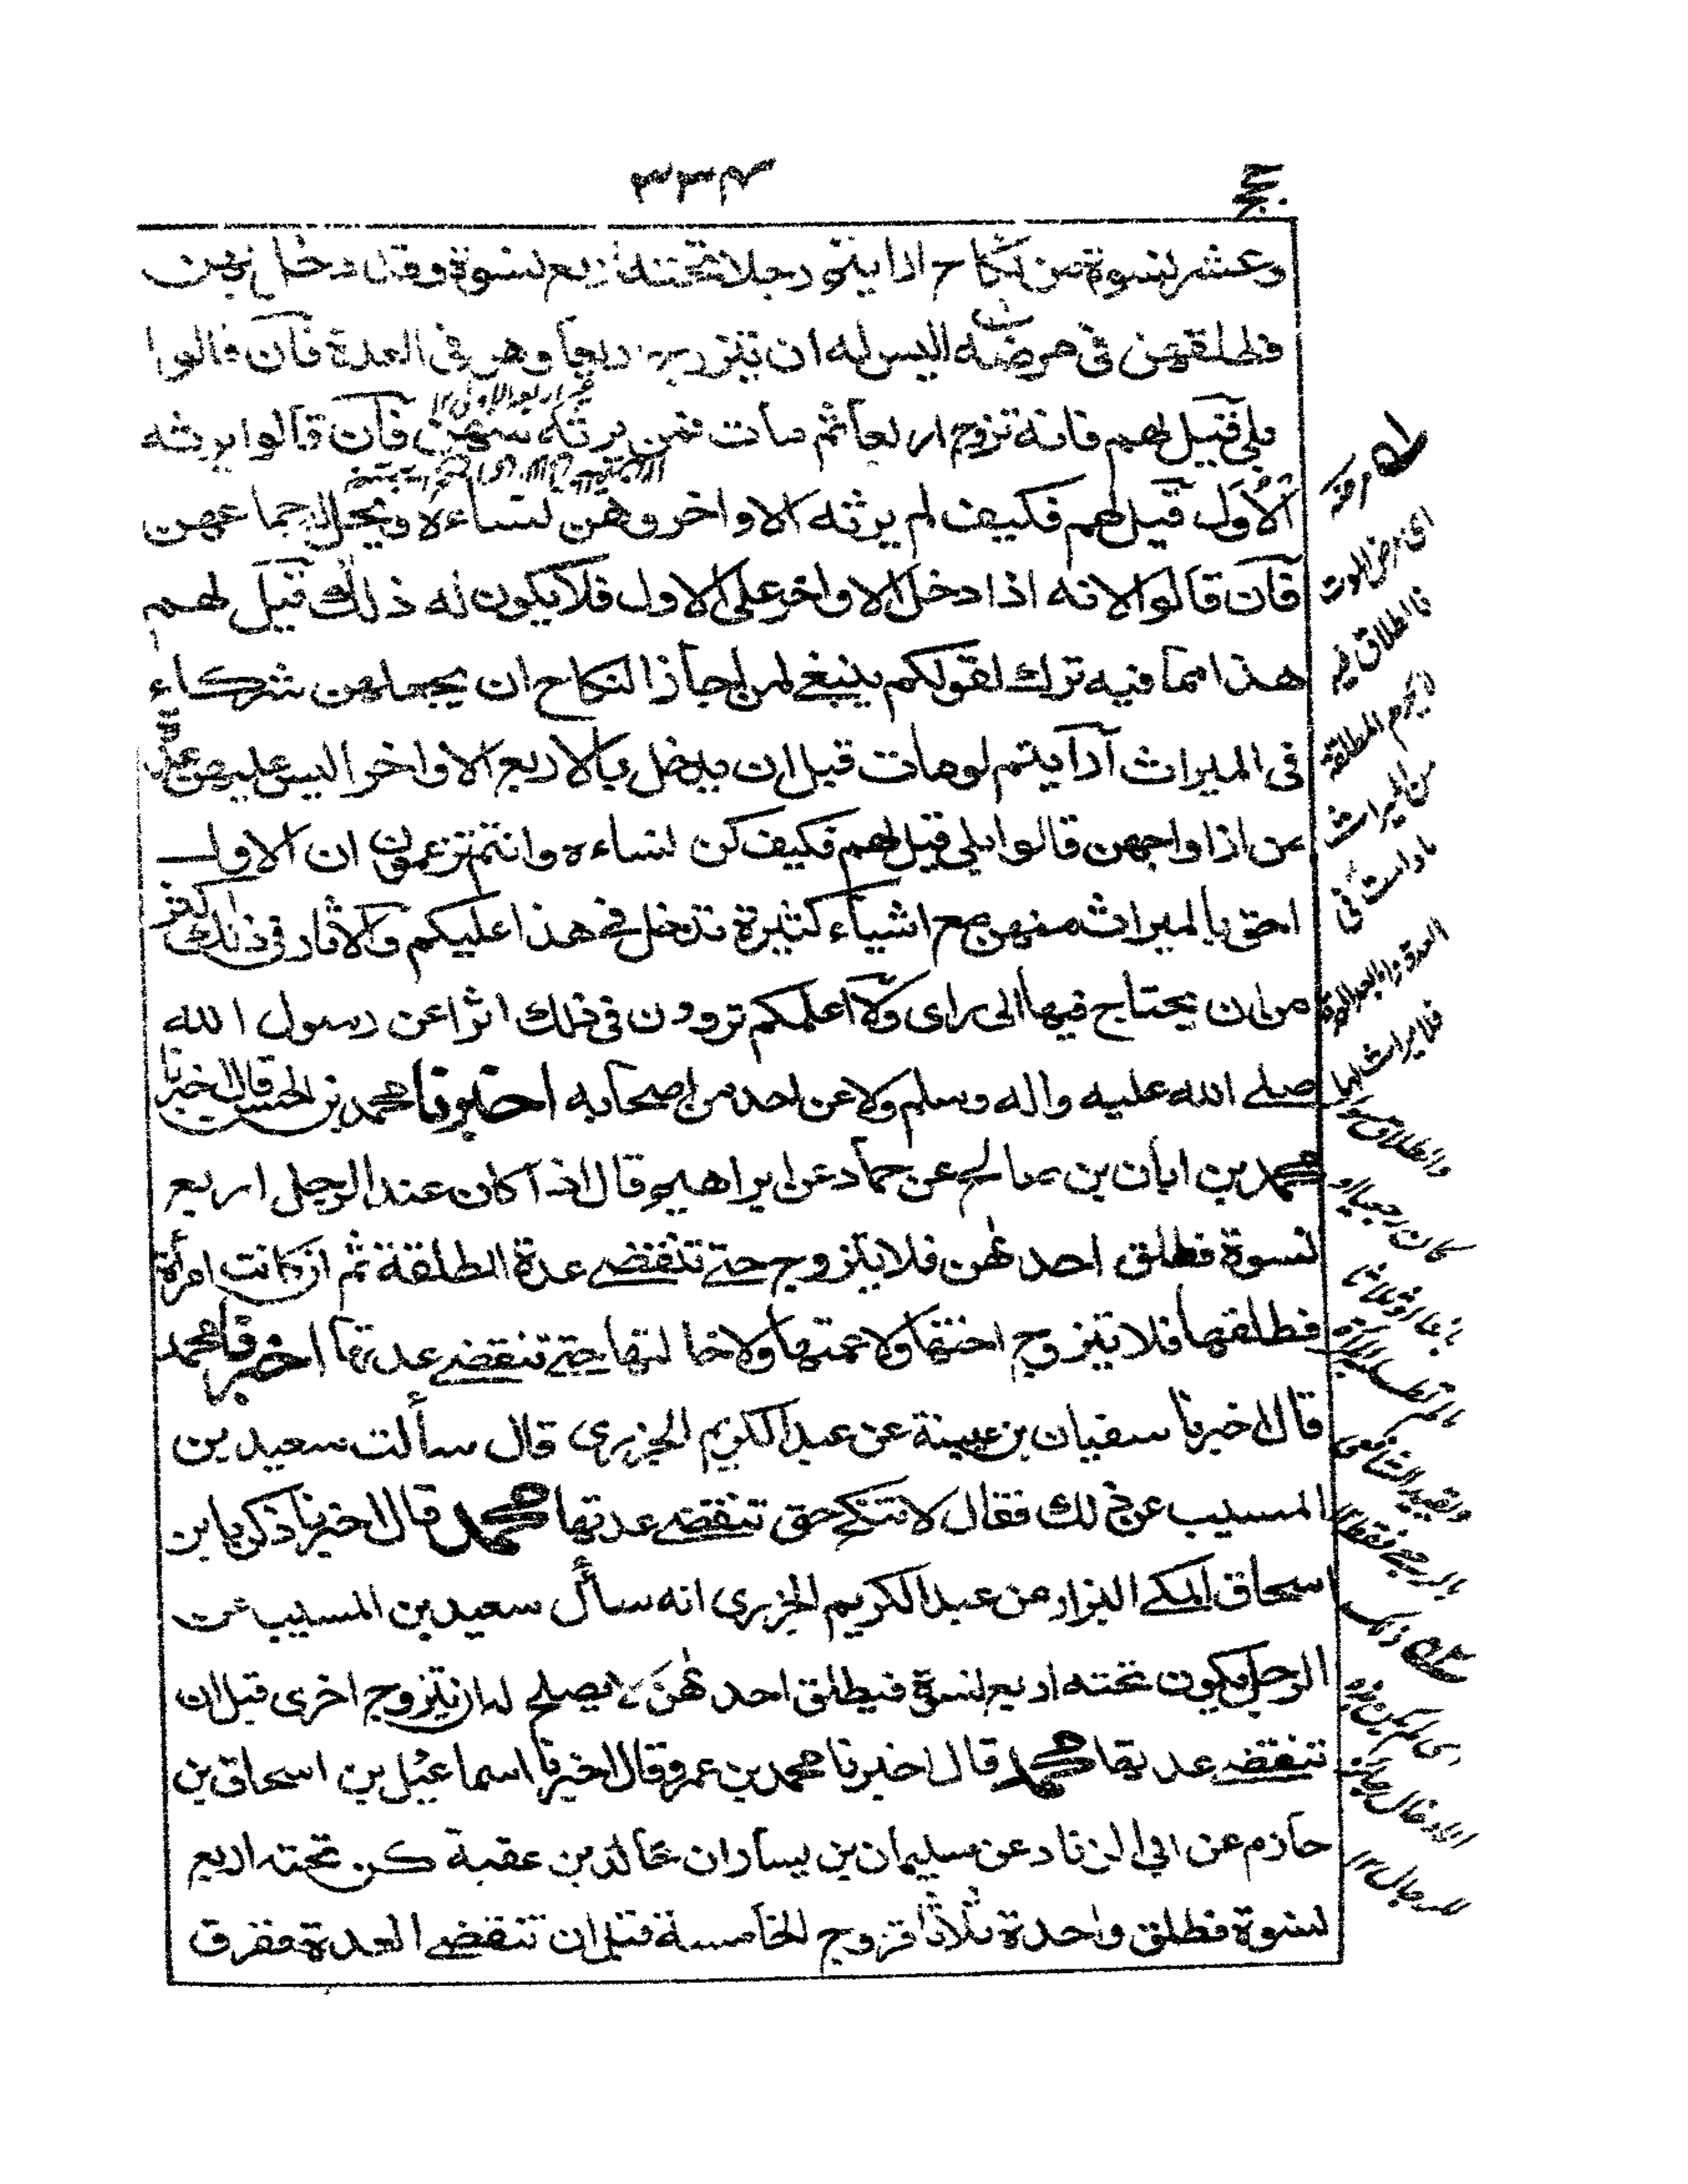 ٣٣٤
وعشر نسوة من نكاح ارايتم رجلا تحته اربع نسوة وقد دخل بهن
فطلقهن في مرضه اليس له ان يتزوج اربعا وهن في العدة فان قالوا
بلى قيل لهم فانه تزوج اربعا ثم مات فمن يرثه منهن فان قالوا يرثه
الاول قيل لهم فكيف لم يرثه الاواخر وهن نساءه ويحل له جماعهن
فان قالوا لانه اذا دخل الاواخر على الاول فلا يكون له ذلك قيل لهم
هذا مما فيه ترك لقولكم ينبغي لمن اجاز النكاح ان يجعلهن شركاء
في الميراث أرأيتم لو مات قبل ان يدخل بالاربع الاواخر اليس عليهن عدة
من ازاواجهن قالوا بلى قيل لهم فكيف كن نساءه وانتم تزعمون ان الاول
احق بالميراث منهن مع اشياء كثيرة تدخل في هذا عليكم والاثار في ذلك اكثر
من ان يحتاج فيها الى راى ولا اعلمكم تروون في ذلك اثرا عن رسول الله
صلى الله عليه واله وسلم ولا عن احد من اصحابه اخبرنا محمد بن الحسن قال اخبرنا
محمد بن ابان بن صالح عن حماد عن ابراهيم قال اذا كان عند الرجل اربع
نسوة فطلق احدٰهن فلا يتزوج حتى تنقضى عدة المطلقة ثم ان كانت امرأة
فطلقها فلا يتزوج اختها ولا عمتها ولا خالتها حتى تنقضى عدتها اخبرنا محمد
قال اخبرنا سفيان بن عيينة عن عبد الكريم الجزري قال سألت سعيد بن
المسيب عن ذلك فقال لا تنكح حتى تنقضى عدتها محمد قال اخبرنا ذكريا بن
اسحاق المكى البزار من عبد الكريم الجزري انه سأل سعيد بن المسيب عن
الرجل يكون تحته اربع نسوة فيطلق احدٰهن لا يصلح له ان يتزوج اخرى قبل ان
تنقضى عدتها محمد قال اخبرنا محمد بن عمر وقال اخبرنا اسماعيل بن اسحاق بن
حازم عن ابي الزناد عن سليمان بن يساران خالد بن عقبة كن تحته اربع
نسوة فطلق واحدة ثلاثا فزوج الخامسة قبل ان تنقضى العدة ففرق
اى مرض الموت
فالطلاق فيه
لا يحرم المطلقة
من الميراث
ما دامت في